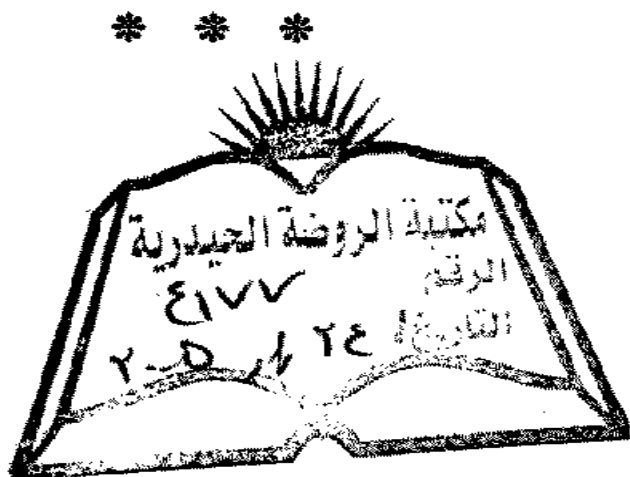 مكتبة الروضة الحيدرية
الرقم
٤١٧٧
التاريخ / ٢٤ ٢٠٠٥